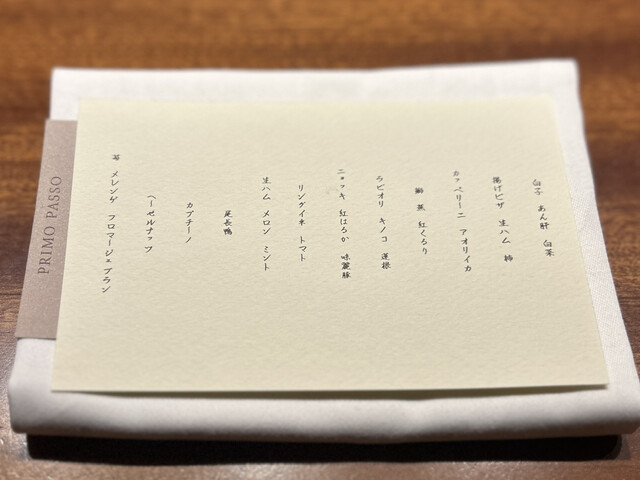 白子 あん肝 白菜
揚げピザ 生ハム 柿
カッペリーニ アオリイカ
鰤 蕪 紅くるり
ラビオリ キノコ 蓮根
ニョッキ 紅はるか 味麗豚
リングイネ トマト
生ハム メロン ミント
尾長鴨
カプチーノ
ヘーゼルナッツ
苺 メレンゲ フロマージュブラン
PRIMO PASSO